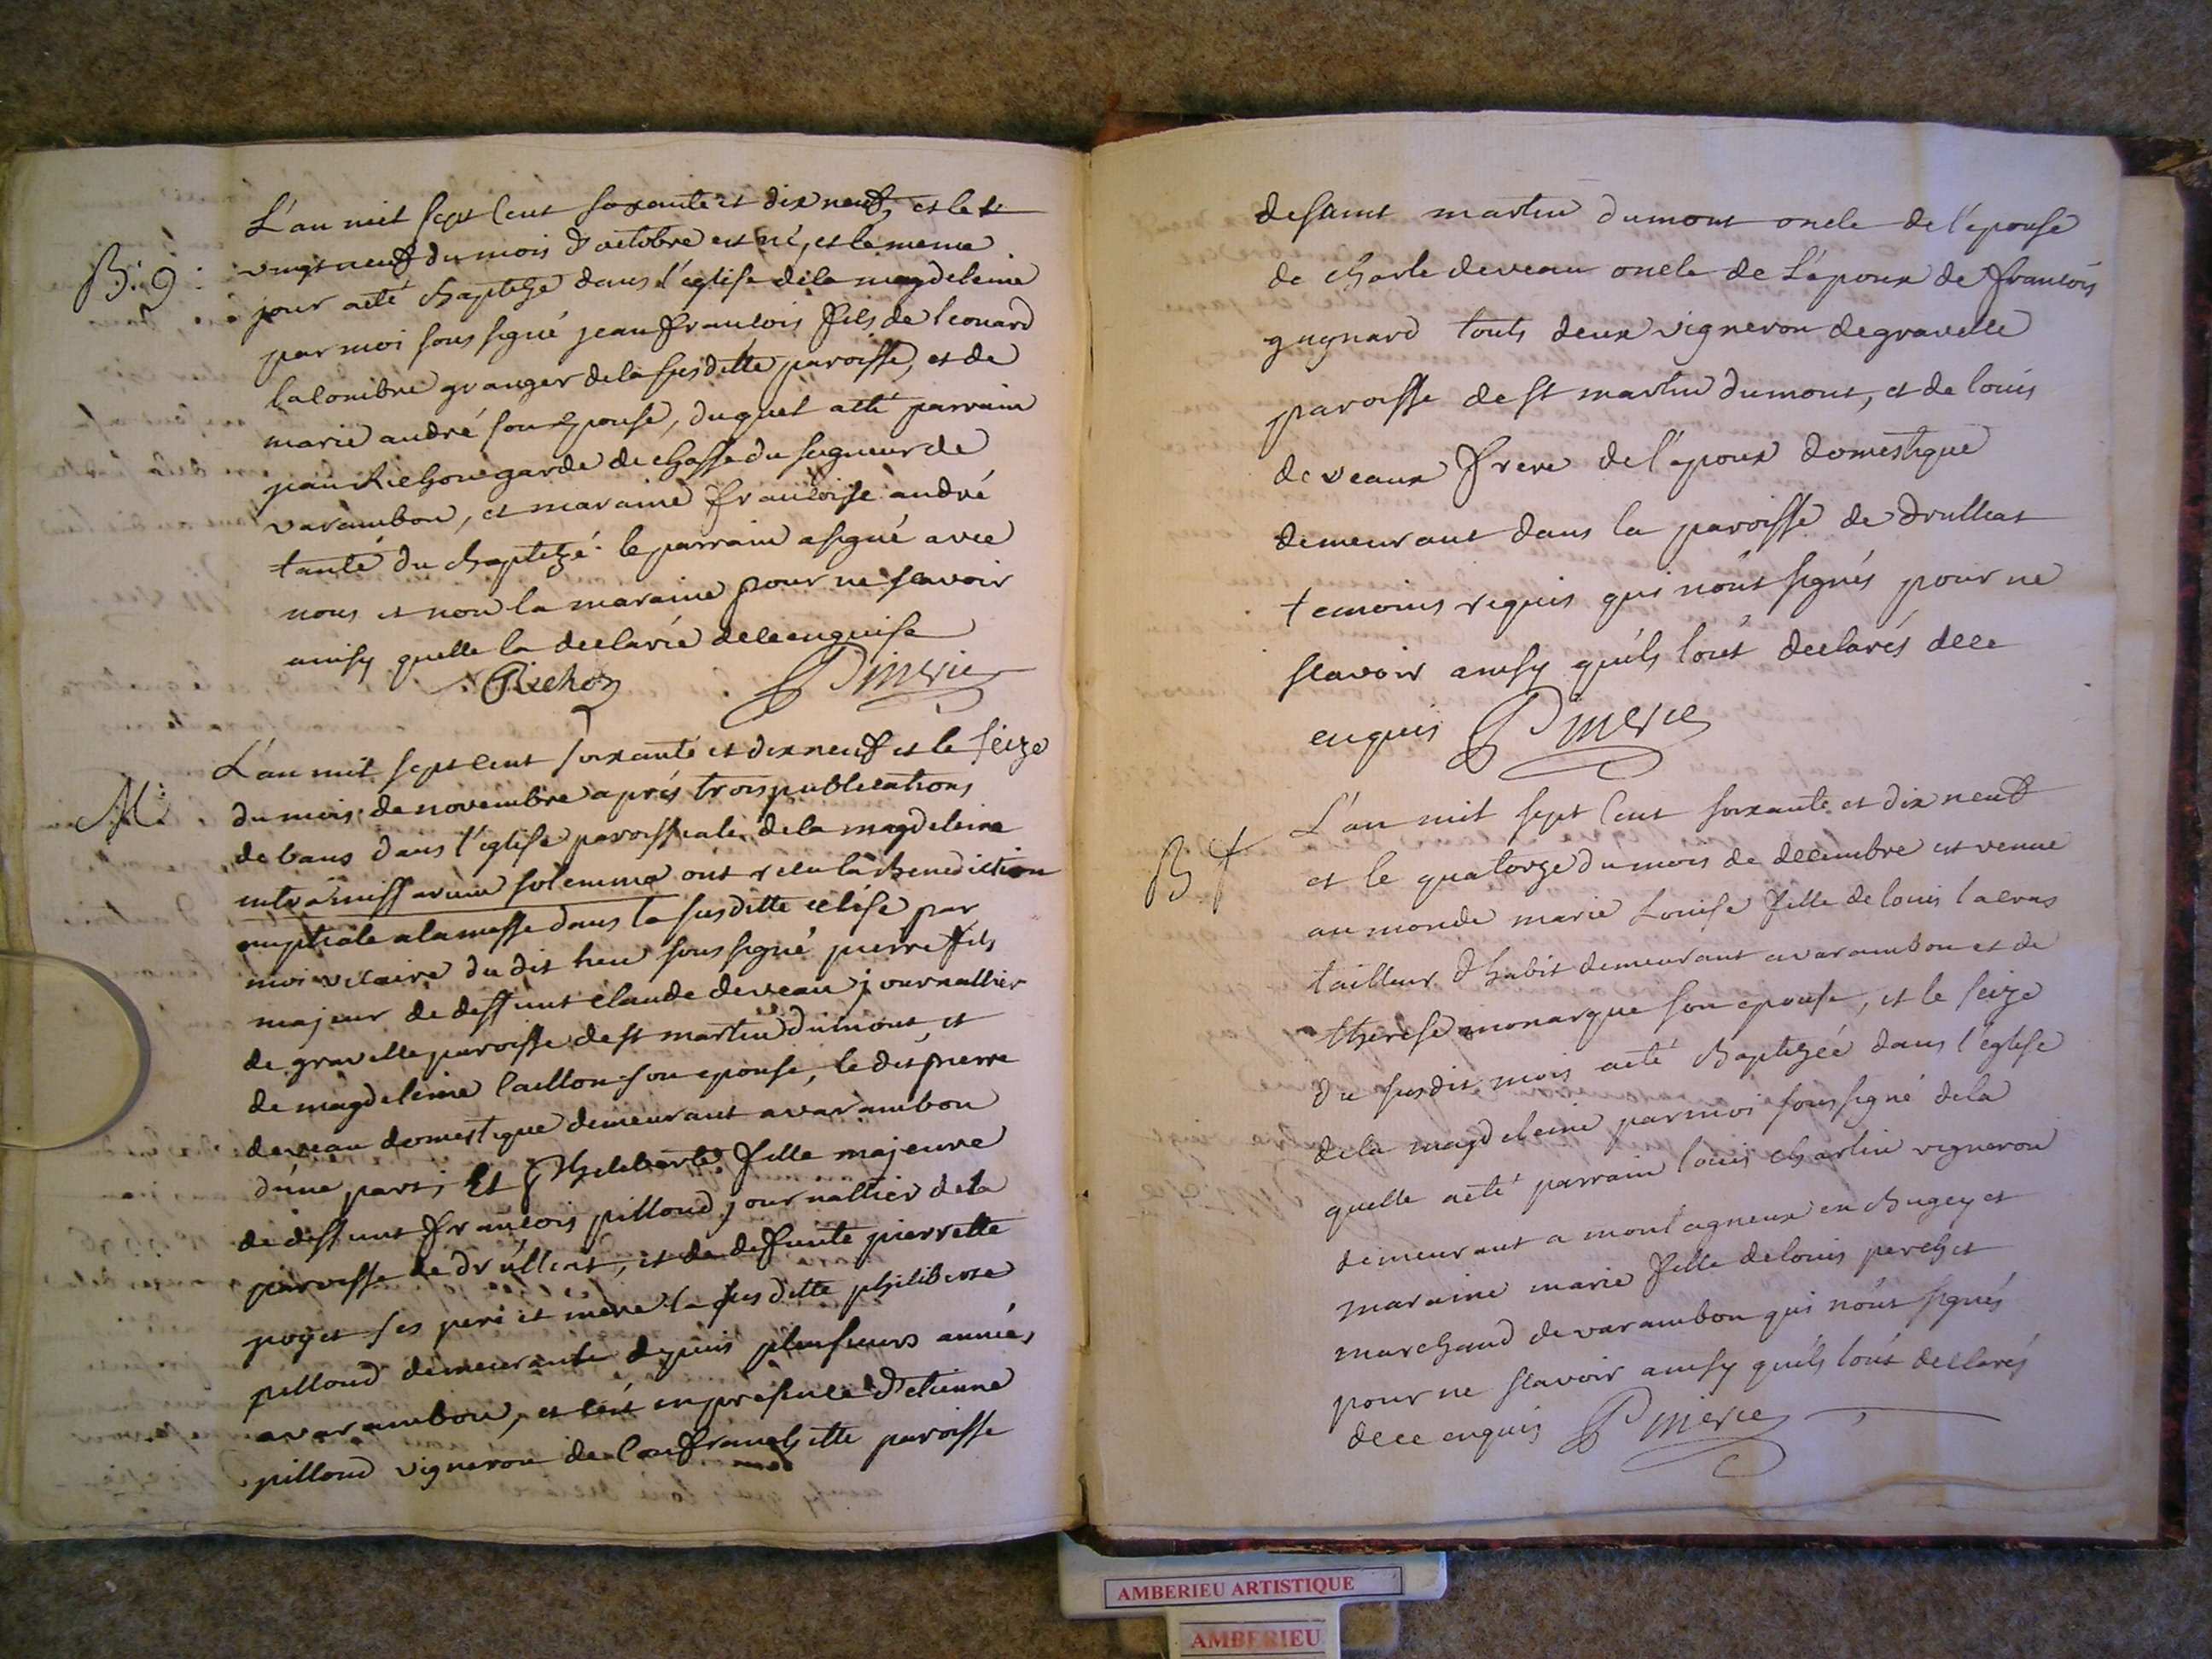 L'an mil sept cent soixante et dix neuf, et le
B: g: vingt neuf du mois d'octobre est né, et le meme
jour aeté baptizé dans l'eglise dela magdeleine
par moi soussigné jean françois fils de leonard
lacombre granger dela susditte paroisse, et de
marie andré son epouse, duquel aété parrain
jean Richon garde de chasse du seigneur de
varambon, et maraine françoise andré
tante du baptizé. le parrain asigné avec
nous et non la maraine pour ne scavoir
ainsy quelle la declarée dece enquise
Richon Pimerie
L'an mil sept cent soixante et dix neuf et le seize
M: du mois de novembre aprés trois publications
de bans dans l'eglise paroissiale dela magdeleine
intra missarum solemnia ont recu la benediction
nuptiale ala messe dans la susditte eclise par
moi vicaire du dit lieu soussigné pierre fils
majeur de deffunt claude deveau journallier
de gravelle paroisse de st martin dumont, et
de magdeleine caillon son epouse, le dit pierre
deveau domestique demeurant avarambon
d'une part; Et philiberte fille majeure
de deffunt françois pilloud journallier dela
paroisse de drulliat, et de defunte pierrette
poget ses pere et mere la susditte philiberte
pilloud demeurante depuis plusieurs années
avarambon, et cêci en presence d'etienne
pilloud vigneron de confranchette paroisse
de saint martin dumont oncle de l'epouse
de charle deveau oncle de l'époux de françois
gugnard touts deux vigneron degravelle
paroisse de st martin dumont, et de louis
deveaux frere de l'epoux domestique
demeurant dans la paroisse de drulliat
temoins requis qui nônt signés pour ne
scavoir ainsy quils lont declarés dece
enquis Pimerie
L'an mil sept cent soixante et dix neuf
B f et le quatorze du mois de decembre est venue
au monde marie Louise fille de louis lacras
tailleur d'habit demeurant avarambon et de
therese monarque son epouse, et le seize
du susdit mois aeté baptizée dans l'église
dela magdeleine parmoi soussigné dela
quelle aeté parrain louis charlin vigneron
demeurant a montagneux en bugey et
maraine marie fille de louis perchet
marchand de varambon qui nônt signés
pour ne scavoir ainsy quils lont declarés
dece enquis Pimerie
AMBERIEU ARTISTIQUE
AMBERIEU